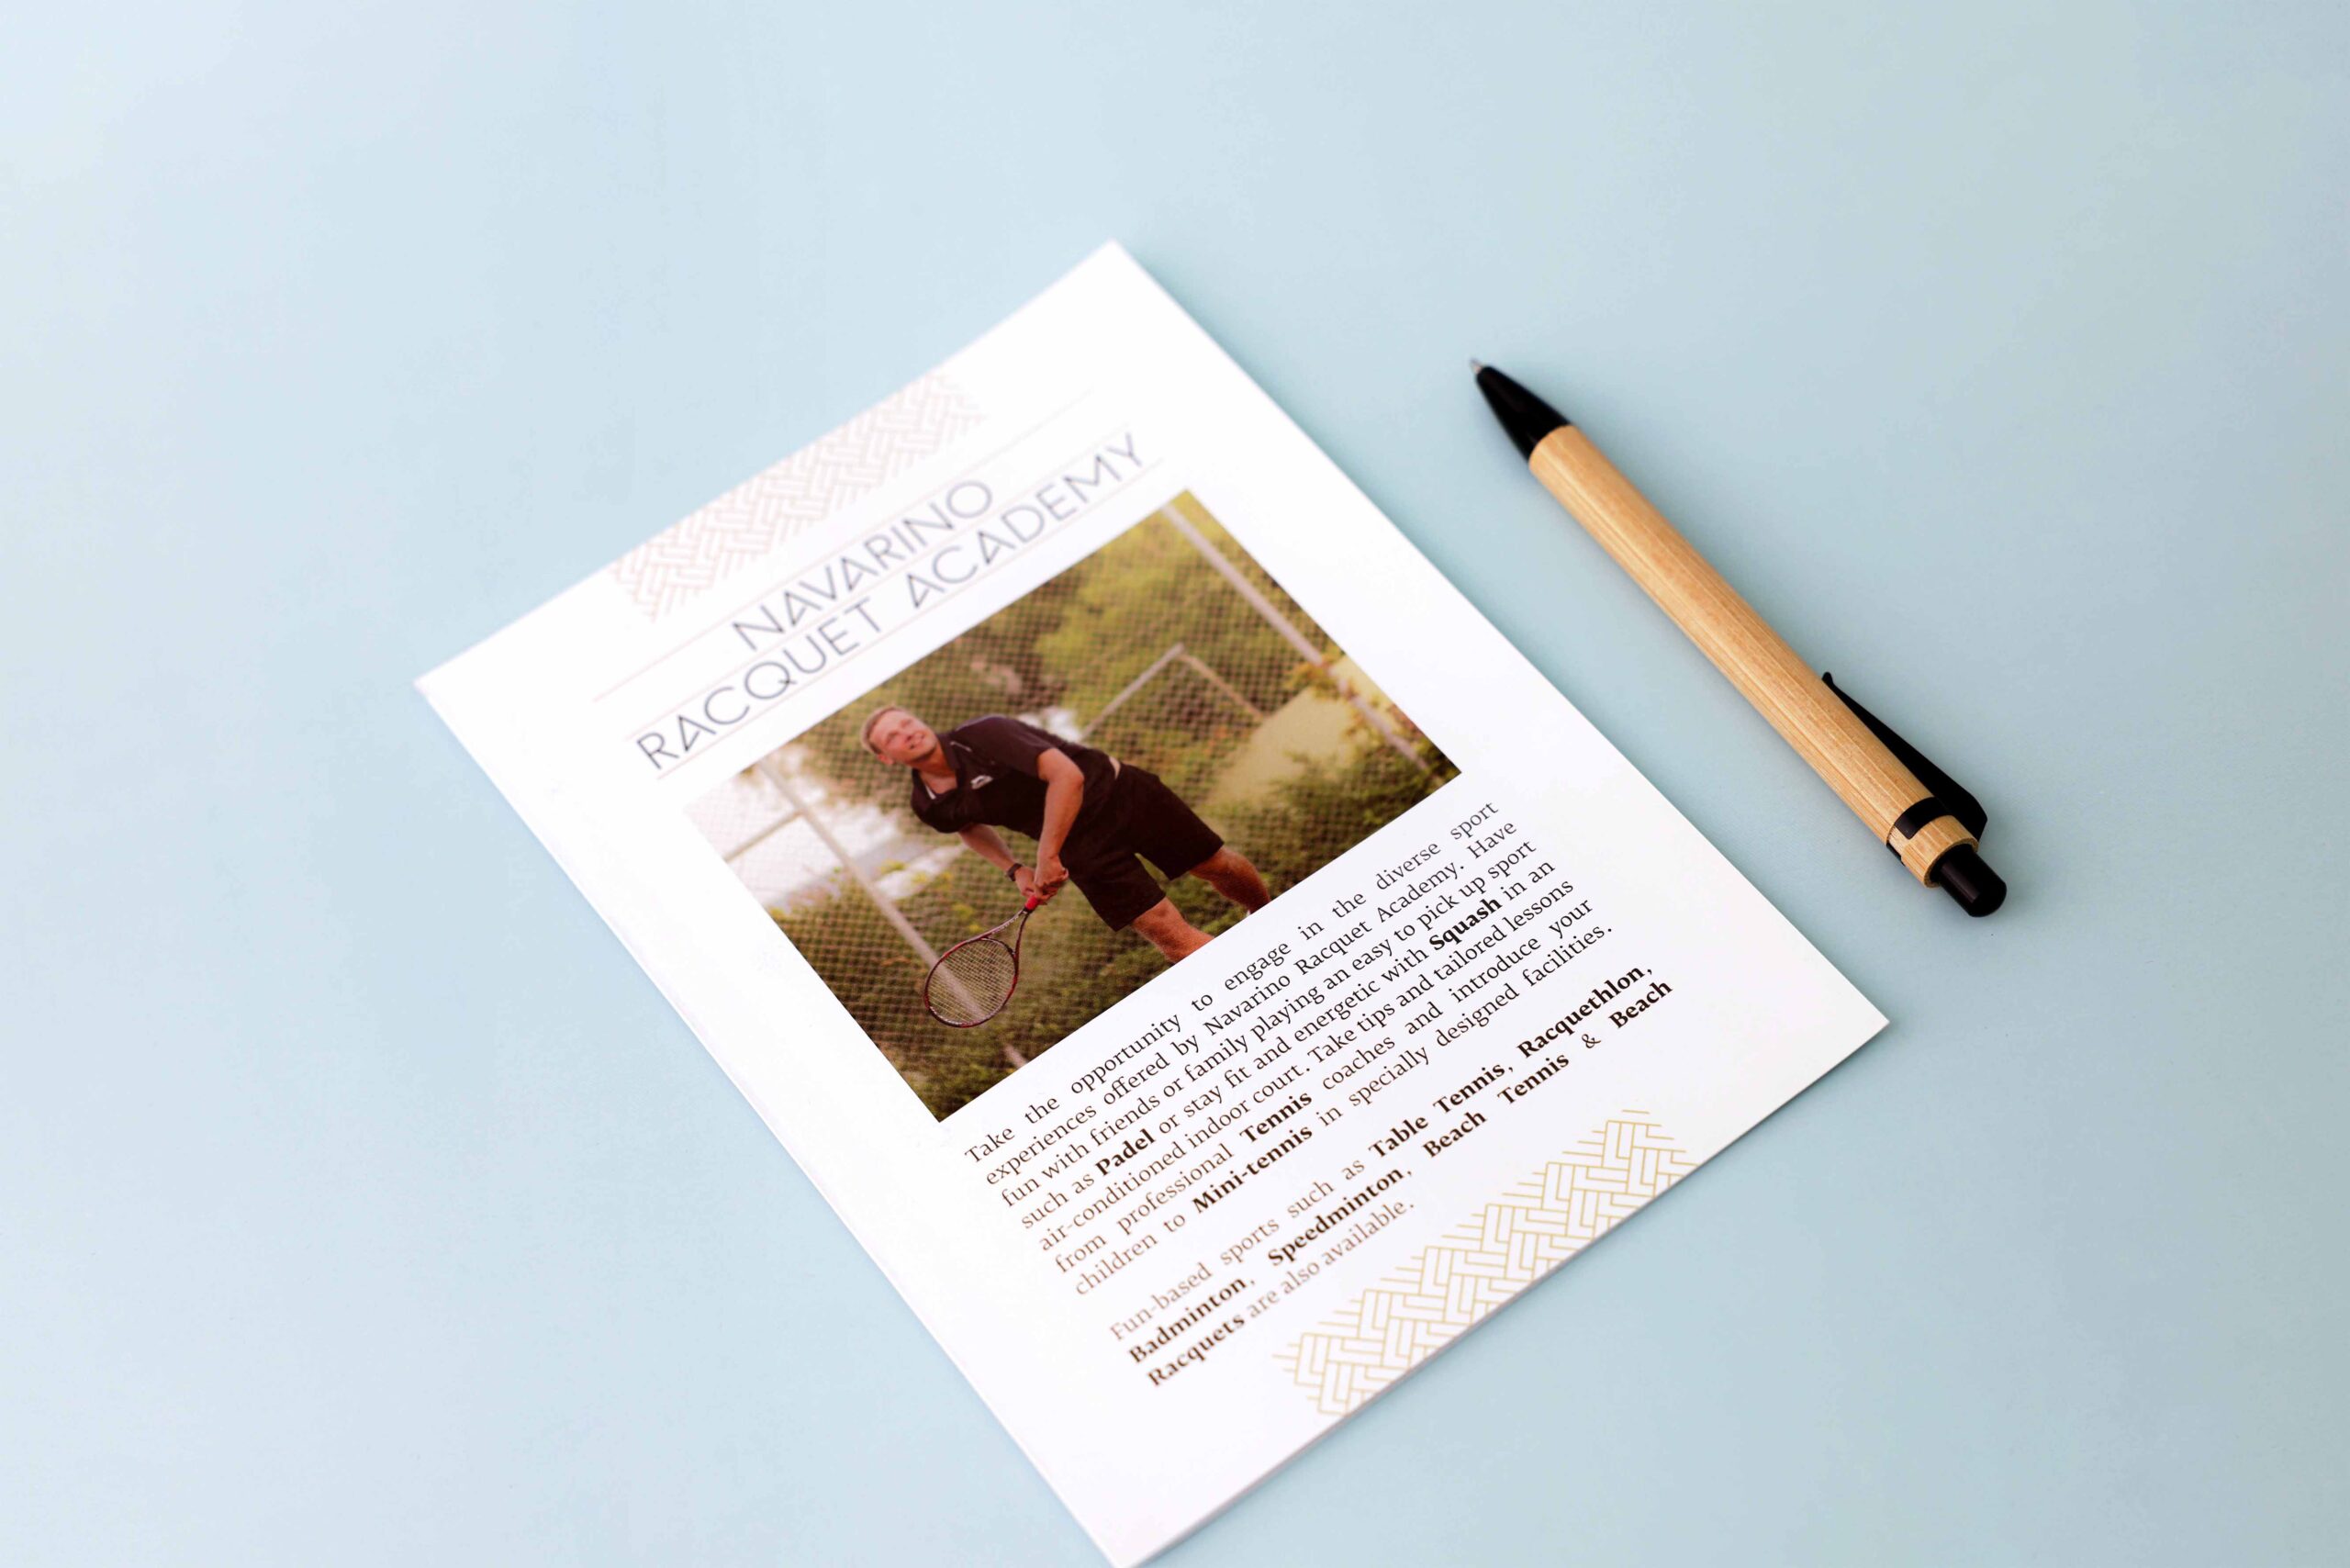 NAVARINO
RACQUET ACADEMY
Take the opportunity to engage in the diverse sport
experiences offered by Navarino Racquet Academy. Have
fun with friends or family playing an easy to pick up sport
such as Padel or stay fit and energetic with Squash in an
air-conditioned indoor court. Take tips and tailored lessons
from professional Tennis coaches and introduce your
children to Mini-tennis in specially designed facilities.
Fun-based sports such as Table Tennis, Racquethlon,
Badminton, Speedminton, Beach Tennis & Beach
Racquets are also available.